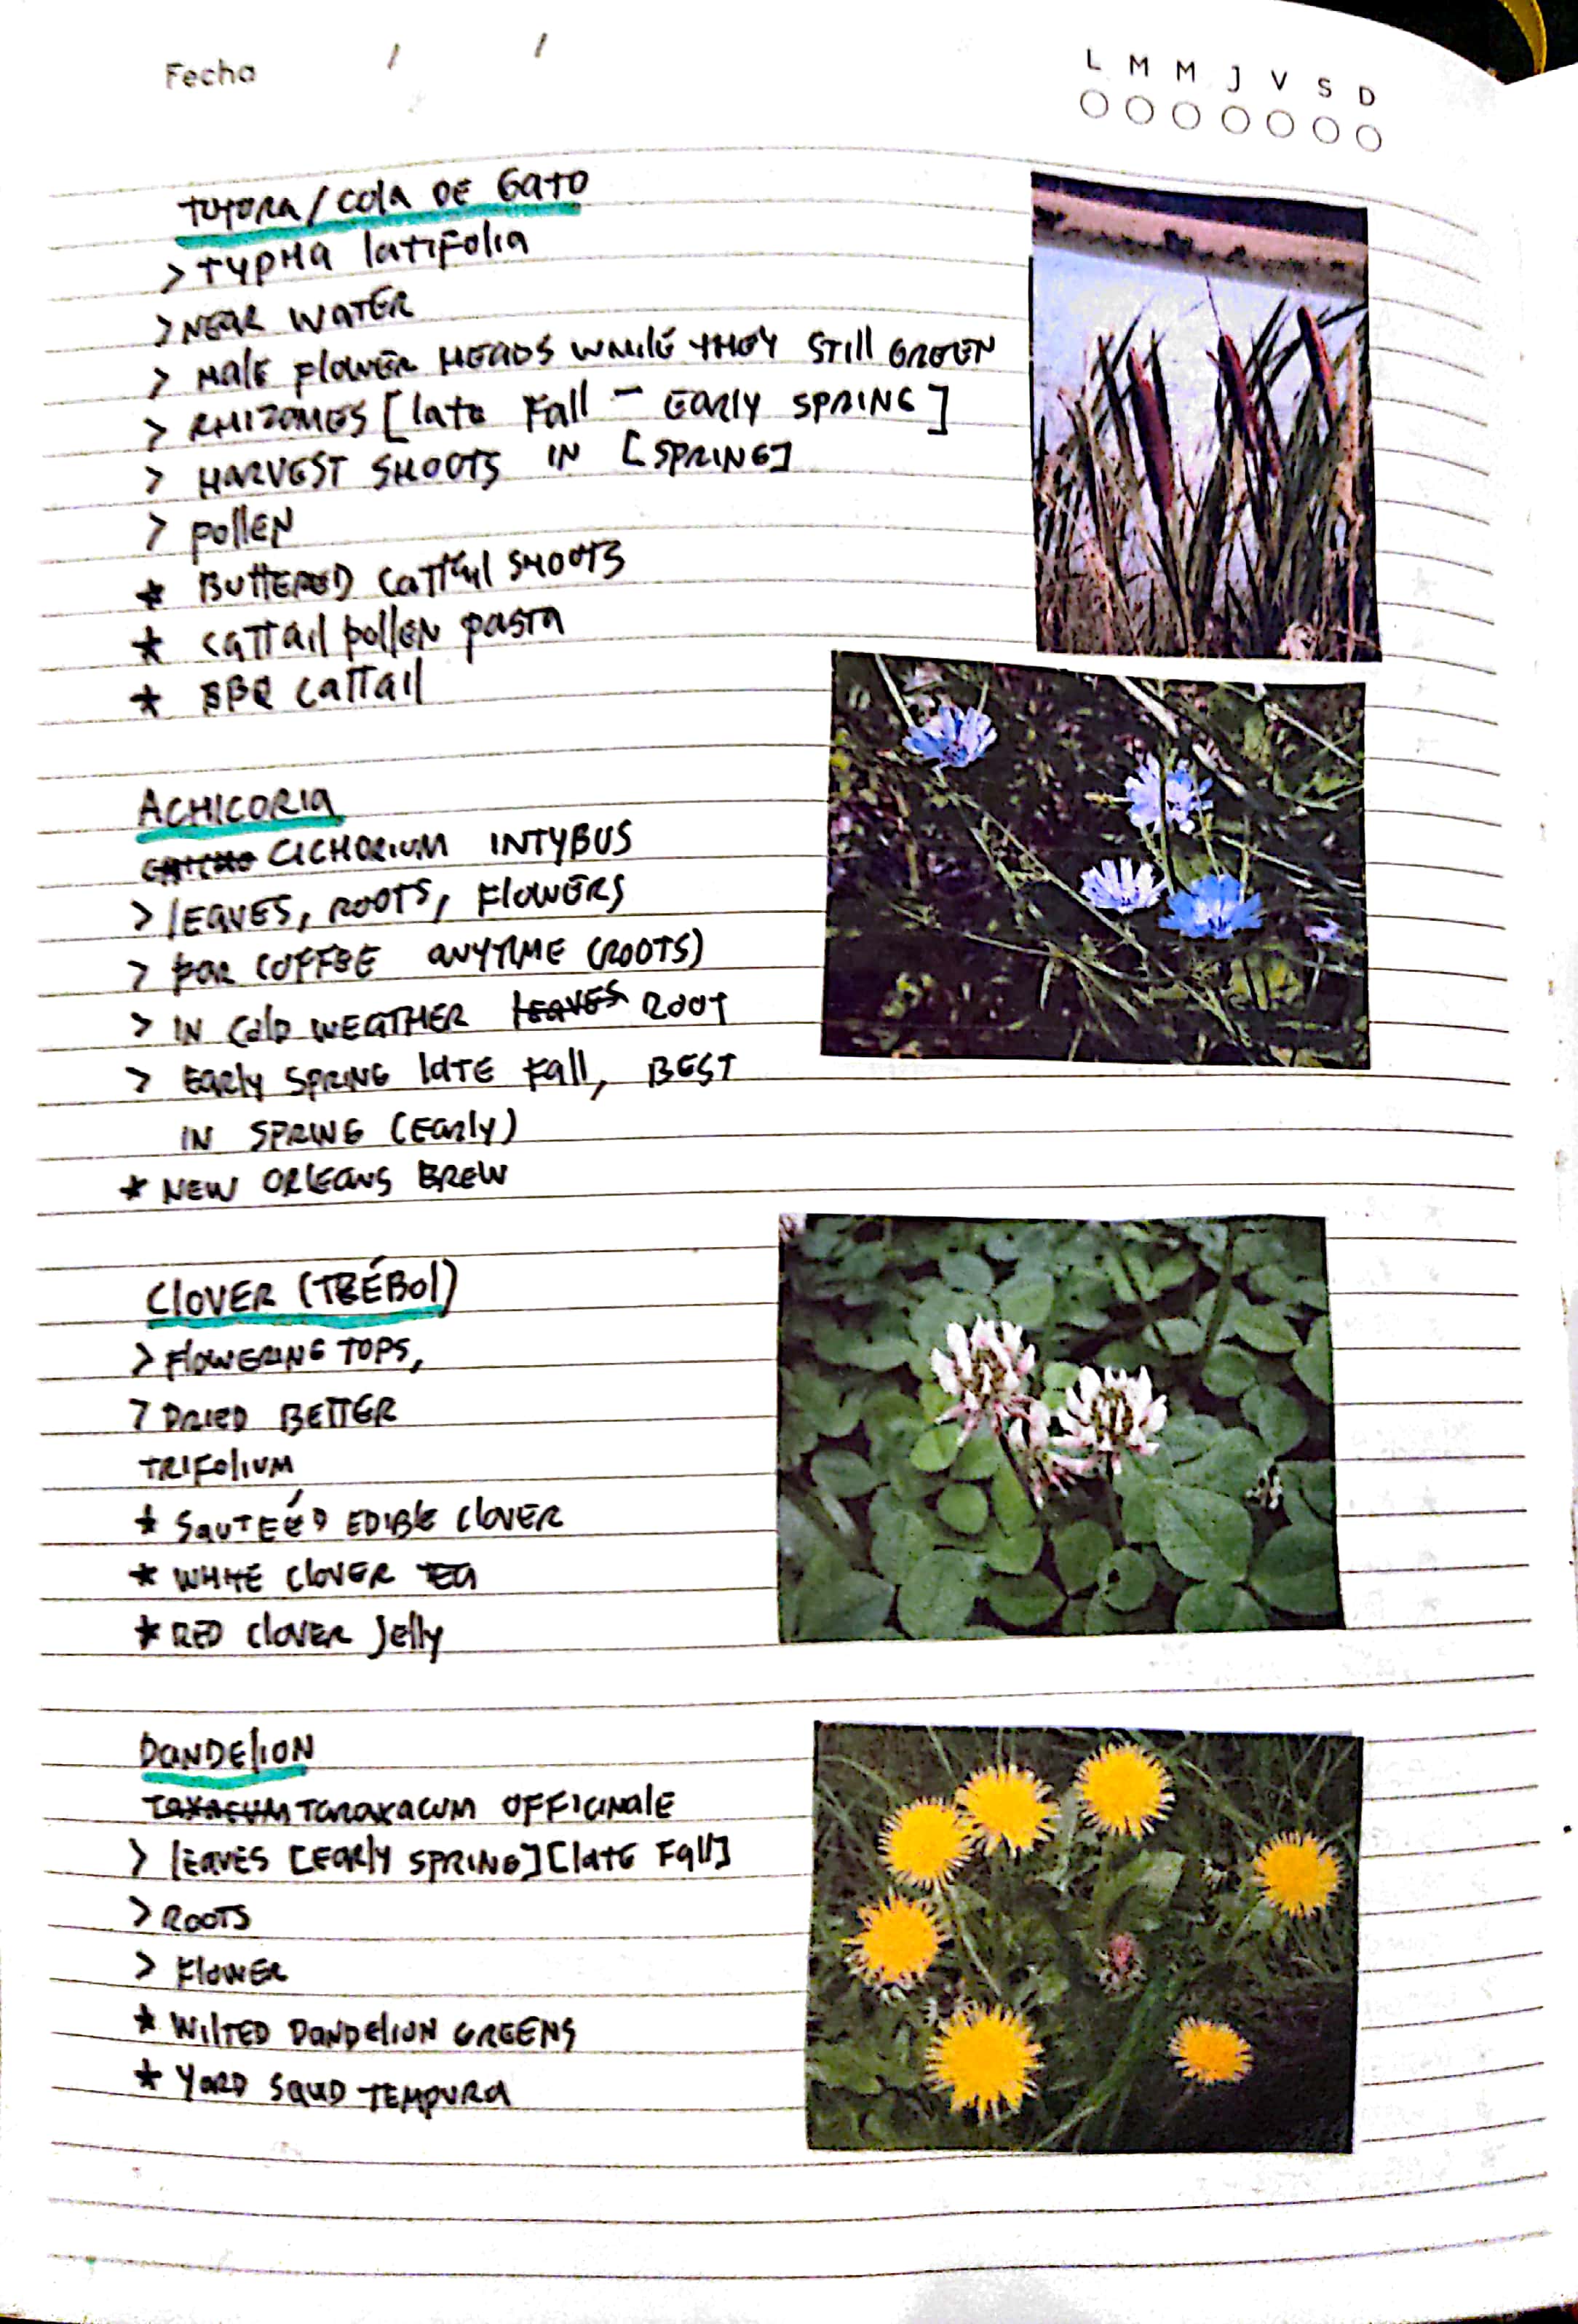 Fecha / /
L M M J V S D
TOTORA/COLA DE GATO
> TYPHA latifolia
> NEAR WATER
> MALE FLOWER HEADS WHILE THEY STILL GREEN
> RHIZOMES [late Fall - EARLY SPRING]
> HARVEST SHOOTS IN [SPRING]
> pollEN
* BUTTERED CATTAIL SHOOTS
* CATTAIL pollEN pasta
* BBQ CATTAIL
ACHICORIA
CICHORIUM INTYBUS
> LEAVES, ROOTS, FLOWERS
> FOR COFFEE ANYTIME (ROOTS)
> IN COLD WEATHER LEAVES ROOT
> EARLY SPRING LATE FALL, BEST
IN SPRING (EARLY)
* NEW ORLEANS BREW
CLOVER (TRÉBOL)
> FLOWERING TOPS,
> DRIED BETTER
TRIFOLIUM
* SAUTEÉD EDIBLE CLOVER
* WHITE CLOVER TEA
* RED CLOVER JELLY
DANDELION
TAXACUM TARAXACUM OFFICINALE
> LEAVES [EARLY SPRING] [LATE FALL]
> ROOTS
> FLOWER
* WILTED DANDELION GREENS
* YARD SQUID TEMPURA